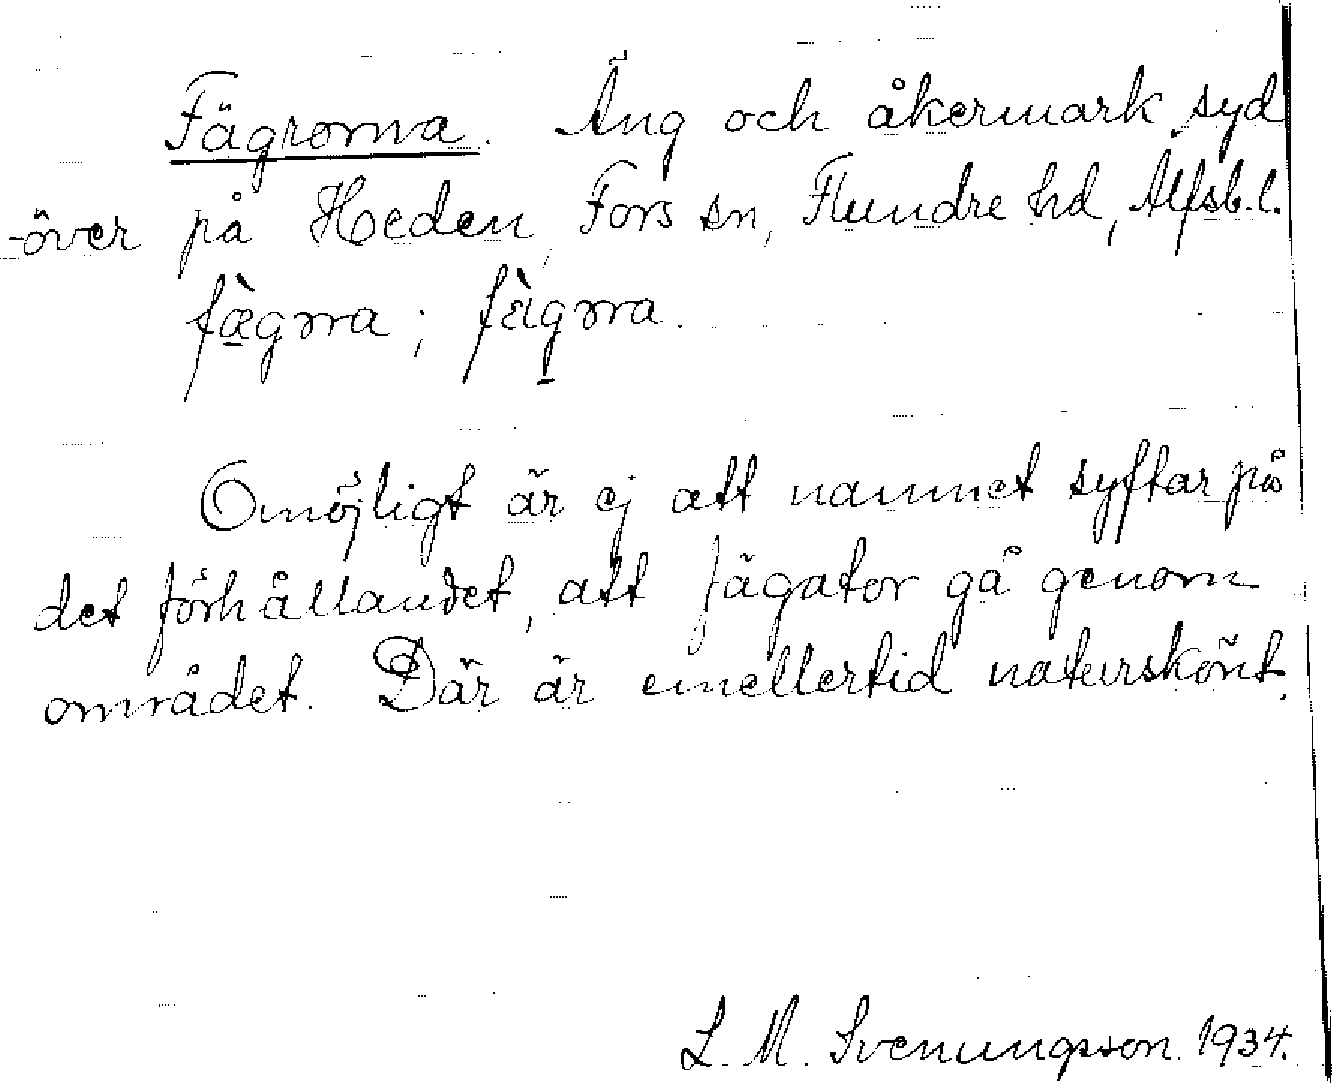 Fägrorna. Äng och åkermark syd
-över på Heden, Fors sn, Flundre hd, Älfsb.l.
fæ̀grɔra; fæ̀grɔra.
Omöjligt är ej att namnet syftar på
det förhållandet, att fägator gå genom
området. Där är emellertid naturskönt.
L. M. Svenungsson. 1934.